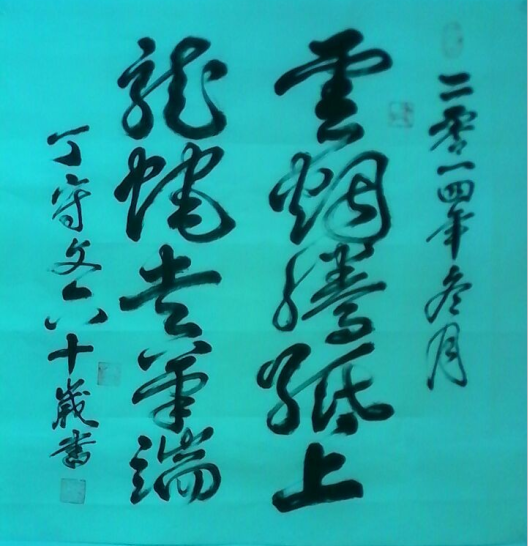 二零一四年冬月
雲烟騰紙上
龍蟠走筆端
丁守文六十歲書